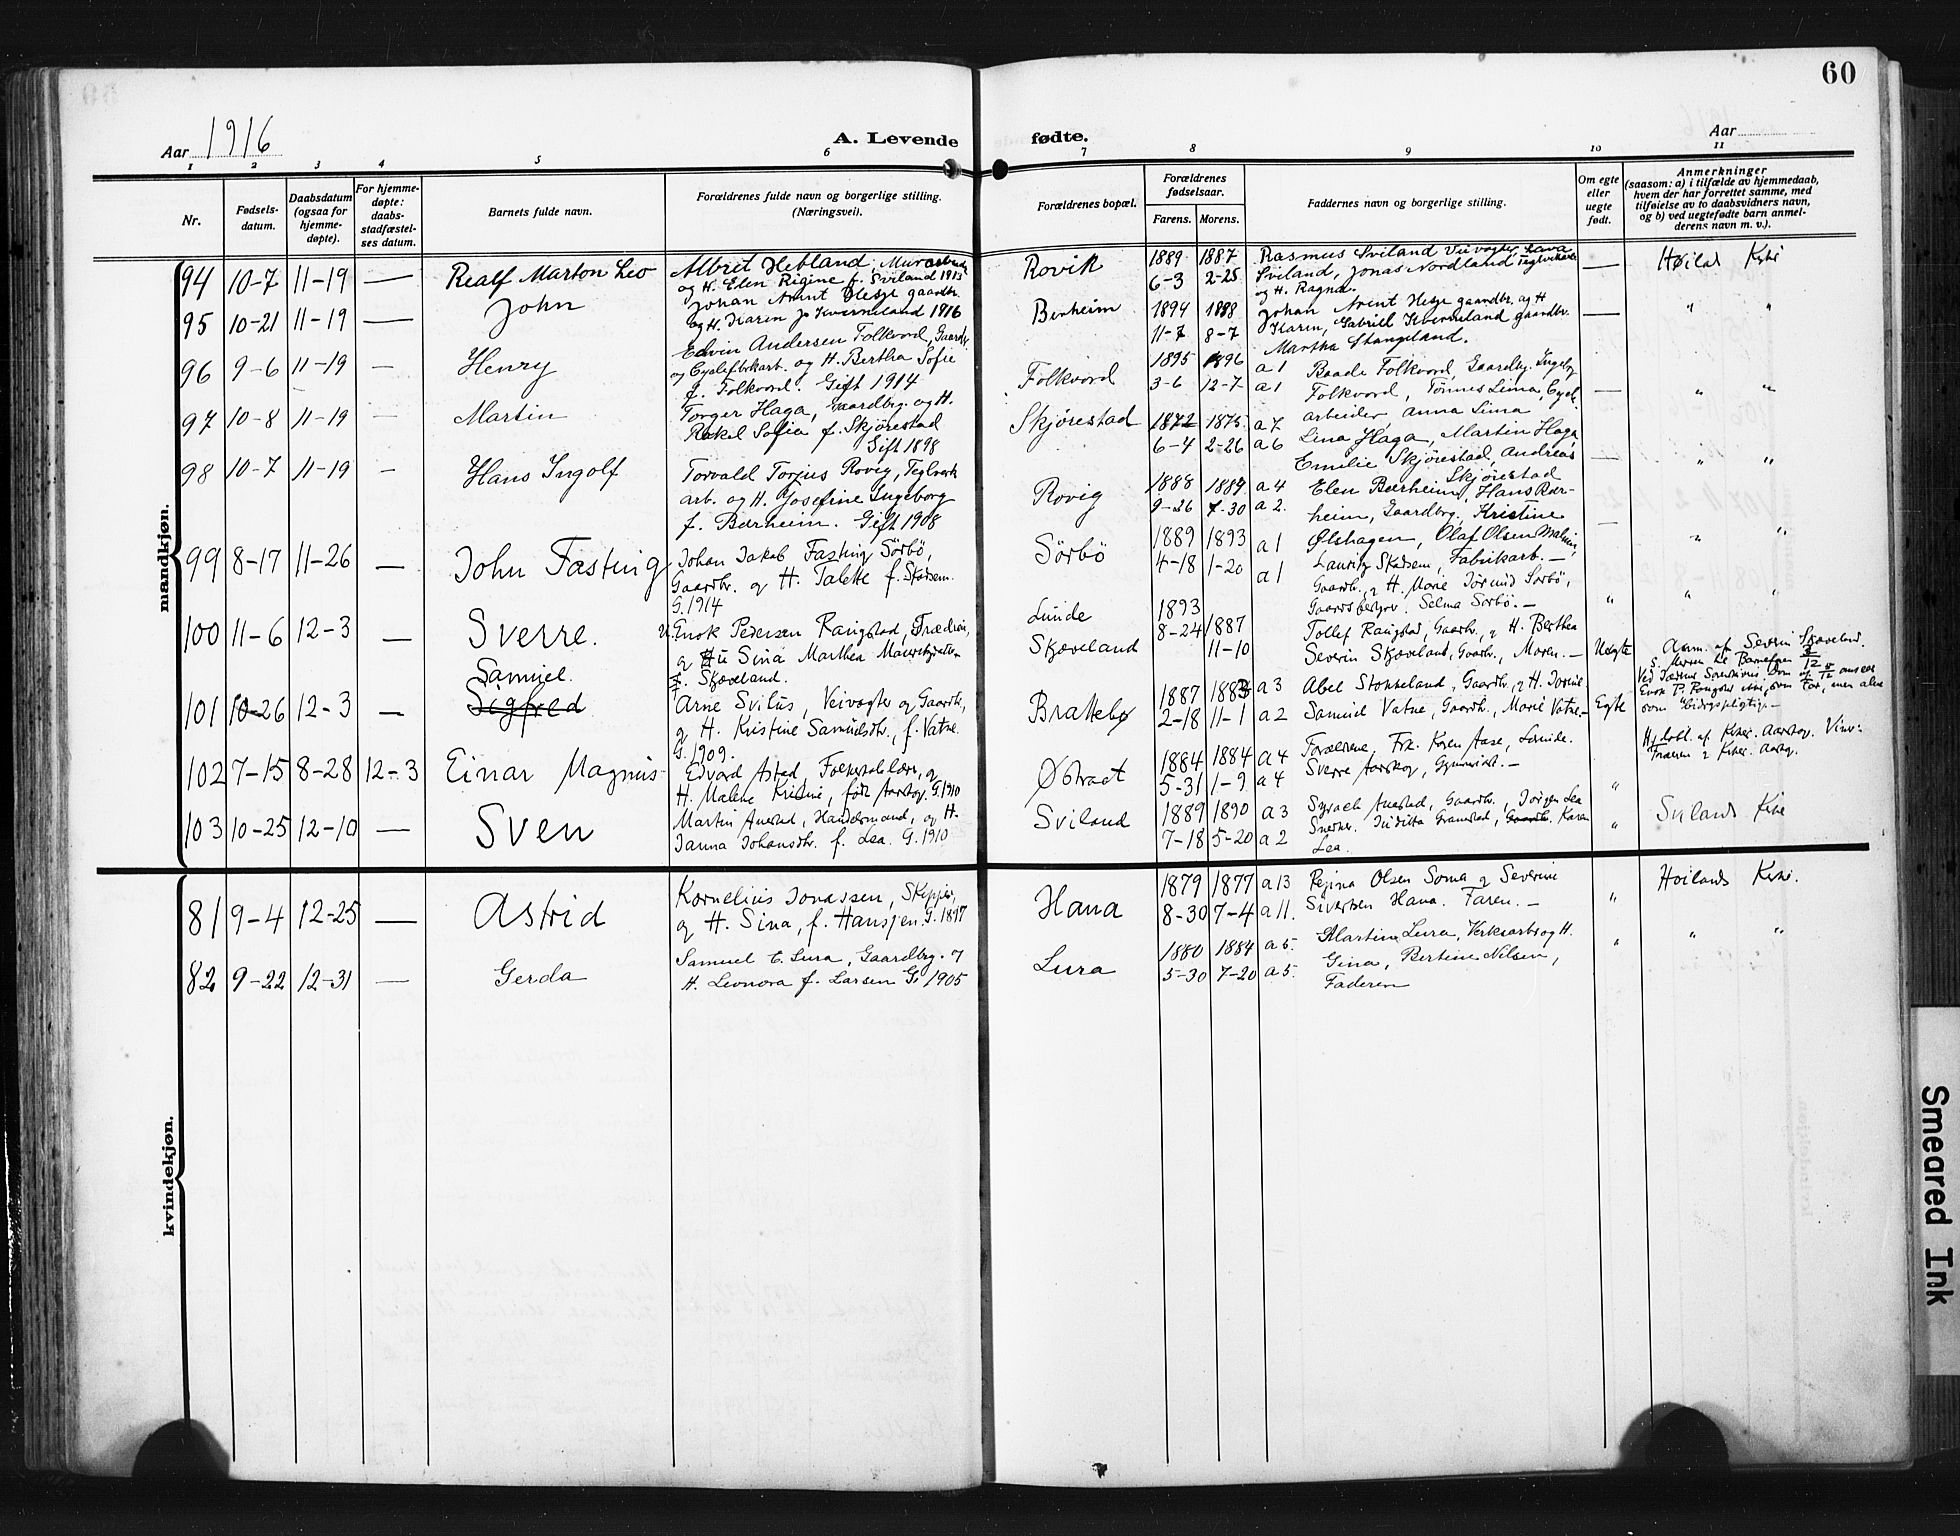 60
Aar 1916
A. Levende fødte.
Aar
1 2 3 4 5 6 7 8 9 10 11
Nr.
Fødsels-
datum.
Daabsdatum
(ogsaa for
hjemme-
døpte).
For hjemme-
døpte:
daabs-
stadfæstel-
ses datum.
Barnets fulde navn.
Forældrenes fulde navn og borgerlige stilling.
(Næringsvei).
Forældrenes bopæl.
Forældrenes
fødselsaar.
Farens. Morens.
Faddernes navn og borgerlige stilling.
Om egte
eller
uegte
født.
Anmerkninger
(saasom: a) i tilfælde av hjemmedaab,
hvem der har forrettet samme, med
tilføielse av to daabsvidners navn,
og b) ved uegtefødte barn anmel-
derens navn m. v.).
mandkjøn.
94 10-7 11-19 — Realf Marton Leo
Albret Hebland
og H. Elen Rigine f. Sviland 1913
Rovik
1889 1887
6-3 2-25
Rasmus Sviland Veivogter
Sviland, Jonas Nordland
og H. Ragna.
—
95 10-21 11-19 — John
Johan Arint Hesje gaardbr.
og H. Karen Kverneland 1916
1894 1888
11-7 8-7
Johan Arint Hesje gaardbr. og H
Karen, Gabriel Kverneland gaardbr.
Martha Stangeland.
— " "
96 9-6 11-19 — Henry
Edvin Andersen Folkvord, Gaardb.
og H. Bertha Sofie
f. Folkvord. Gift 1914
Folkvord
1895 1896 a 1
3-6 12-7 a 1
Baade Folkvord, Gaardbg. Ingeborg
Folkvord, Tönnes Lima,
arbeider, Anna Lima
— " "
97 10-8 11-19 — Martin
Torger Haga, Gaardbg. og H.
Rakel Sofie f. Skjørestad
Gift 1898
Skjørestad
1872 1875 a 7
6-4 2-26 a 6
Lina Haga, Martin Haga
Emilie Skjørestad, Andreas
Skjørestad
— " "
98 10-7 11-19 — Hans Ingolf
Torvald Torjus Rovig, Teglverk
arb. og H. Josefine Ingeborg
f. Bærheim. Gift 1908
Rovig
1888 1889 a 4
9-26 7-30 a 2.
Elen Bærheim, Hans Bær-
heim, Gaardbrg, Kristine
— "
99 8-17 11-26 — John Fasting
Johan Jakob Fasting Sörbö,
Gaardbr. og H. Talette f. Skadsem.
G. 1914
Sörbö
1889 1893 a 1
4-18 1-20 a 1
Olaf Olsen
Lauritz Skadsem, Fabrikarb. —
Gaardb., og H. Marie Sörbö,
Selma Sörbö. —
" " "
100 11-6 12-3 — Sverre.
Enok Pedersen Rangstad,
og Sina Marthea
f. Skjæveland.
Lunde
Skjæveland
1893
8-24 1887
11-10
Tollef Rangstad, Gaardbr., og H. Berthea
Severin Skjæveland, Gaardbr., Moren. —
Uegte
Anm. af Severin Skjæveland
101 10-26 12-3 — Samuel.
Sigfred
Arne Svilus, Veivogter og Gaardbr.,
og H. Kristine Samuelsdtr., f. Vatne.
G. 1909.
Brattebø
1887 1883 a 3
2-18 11-1 a 2
Abel Stokkeland, Gaardbr., og H.
Samuel Vatne, Gaardbr., Marie Vatne —
Egte
102 7-15 8-28 12-3 Einar Magnus
Edvard Astad, Folkeskolelærer, og
H. Malene Kristine, født Aarskog. G. 1910
Østraat
1884 1884 a 4
5-31 1-9 a 4
Forældrene, Frk. Karen Aase, Lunde.
Sverre Aarskog, Gymnasiast. —
"
103 10-25 12-10 — Sven
Martin Auestad, Handelsmand, og H.
Janna Johansdtr. f. Lea. G. 1910
Sviland
1889 1890 a 3
7-18 5-20 a 2
Auestad, Gaardbr., Jörgen Lea
Snedker. Juditta Gramstad, Gaardb. Karen
Lea.
"
Svilands Kirke
kvindekjøn.
81 9-4 12-25 — Astrid
Kornelius Jonassen, Skipper,
og H. Sina, f. Hansen G. 1897
Hana
1879 1877 a 13
8-30 7-4 a 11.
Regina Olsen Soma og Severine
Sivertsen Hana. Faren. —
"
Høilands Kirke.
82 9-22 12-31 — Gerda
Samuel E. Lura, Gaardbrg. og
H. Leonora f. Larsen G. 1905
Lura
1880 1884 a 5.
5-30 7-20 a 5.
Martin Lura, Verksarb. og H.
Gina, Bertine Nilsen,
Faderen
" " "
Smeared Ink